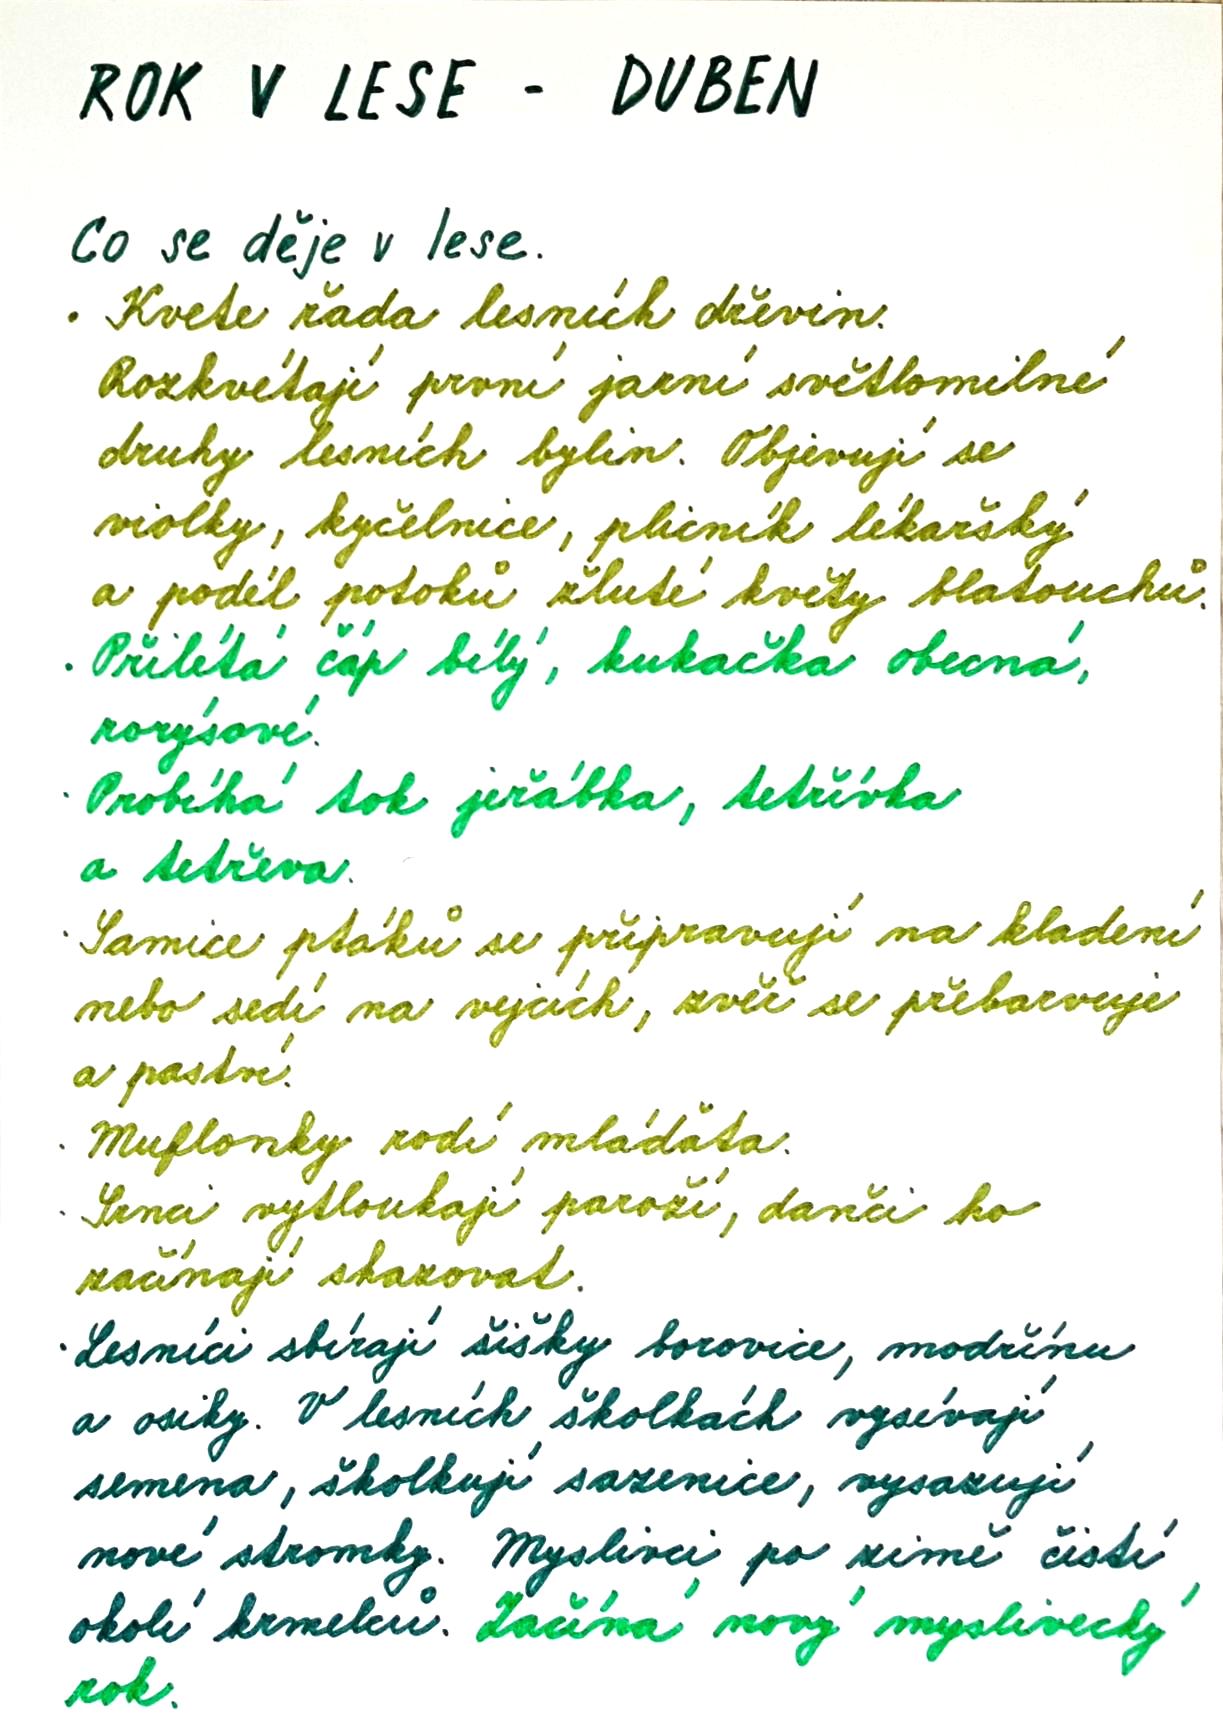 ROK V LESE - DUBEN
Co se děje v lese.
· Kvete řada lesních dřevin.
Rozkvétají první jarní světlomilné
druhy lesních bylin. Objevují se
violky, kyčelnice, plicník lékařský
a podél potoků žluté květy blatouchů.
· Přilétá čáp bílý, kukačka obecná,
rorýsové.
· Probíhá tok jeřábka, tetřívka
a tetřeva.
· Samice ptáků se připravují na kladení
nebo sedí na vejcích, zvěř se přebarvuje
a paství.
· Muflonky rodí mláďata.
· Srnci vytloukají paroží, danči ho
začínají shazovat.
· Lesníci sbírají šišky borovice, modřínu
a osiky. V lesních školkách vysívají
semena, školkují sazenice, vysazují
nové stromky. Myslivci po zimě čistí
okolí krmelců. Začíná nový myslivecký
rok.